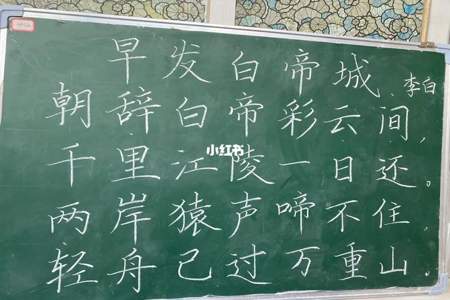 早发白帝城
李白
朝辞白帝彩云间，
千里江陵一日还。
小红书
两岸猿声啼不住，
轻舟已过万重山.